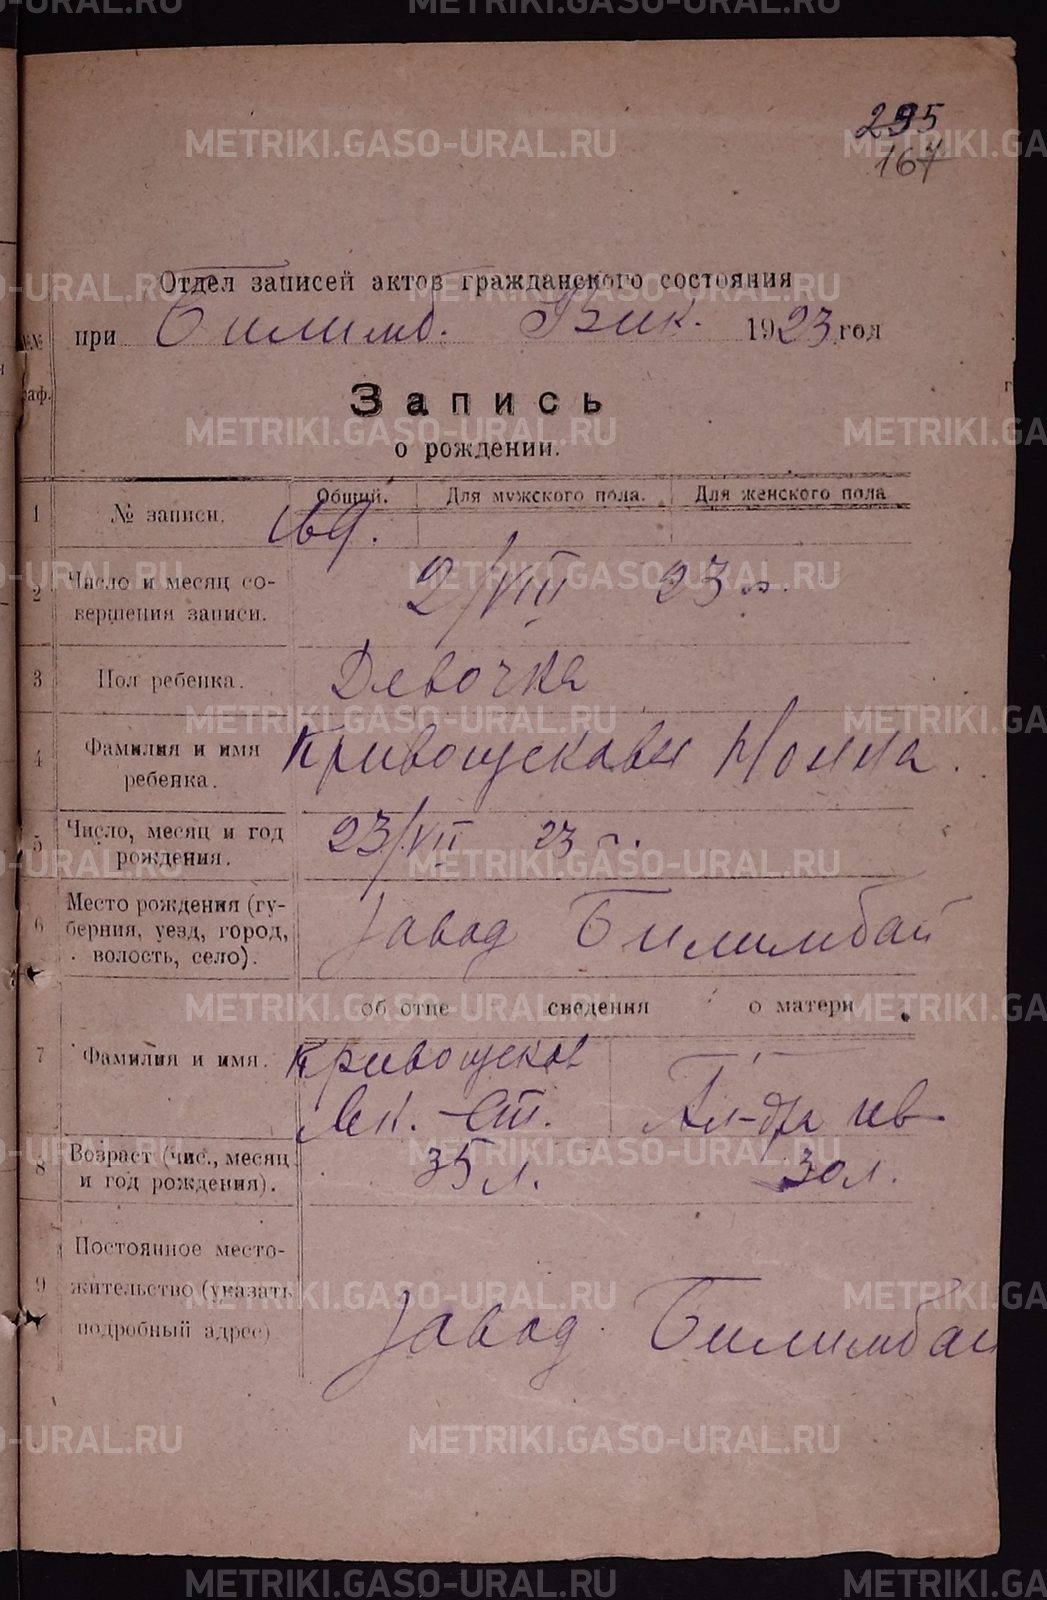 295
167
Отдел записей актов гражданского состояния
при Билимб. Вик. 1923 год
Запись
о рождении.
Общий. Для мужского пола. Для женского пола
1 № записи. 169.
2 Число и месяц со-
вершения записи. 2/VIII 23 г.
3 Пол ребенка. Девочка
4 Фамилия и имя
ребенка. Кривощекова Нонна.
5 Число, месяц и год
рождения. 23/VII 23 г.
6 Место рождения (гу-
берния, уезд, город,
волость, село). Завод Билимбай
об отце сведения о матери
7 Фамилия и имя. Кривощеков
Ст. Ал-дра Ив
8 Возраст (чис., месяц
и год рождения). 35 л. 30 л.
9 Постоянное место-
жительство (указать
подробный адрес) Завод Билимбай
METRIKI.GASO-URAL.RU